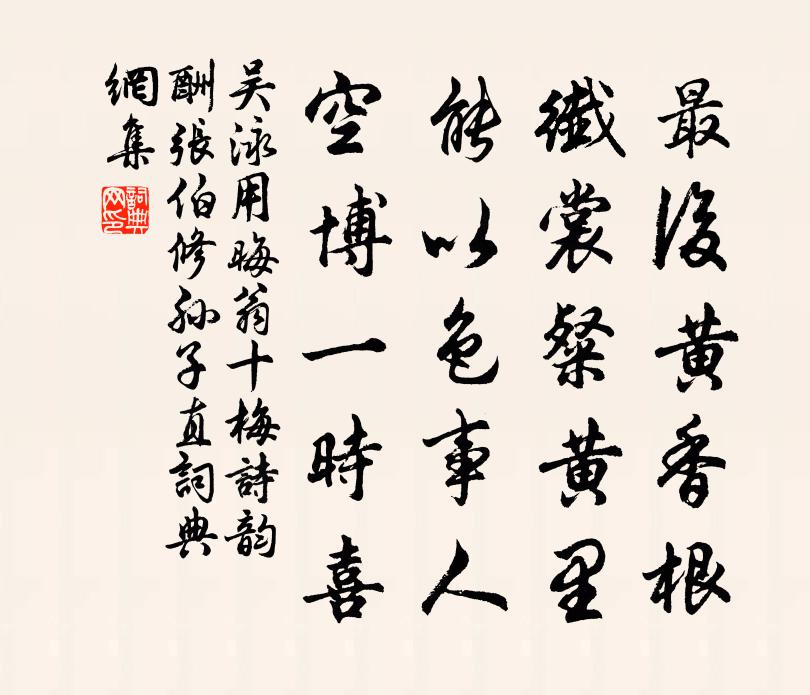 最後黃香根
纖裳粲黃里
能以色事人
空博一時喜
吳泳用晦翁十梅詩韵
酬張伯修孙子直詞典
網集
詞典
网印